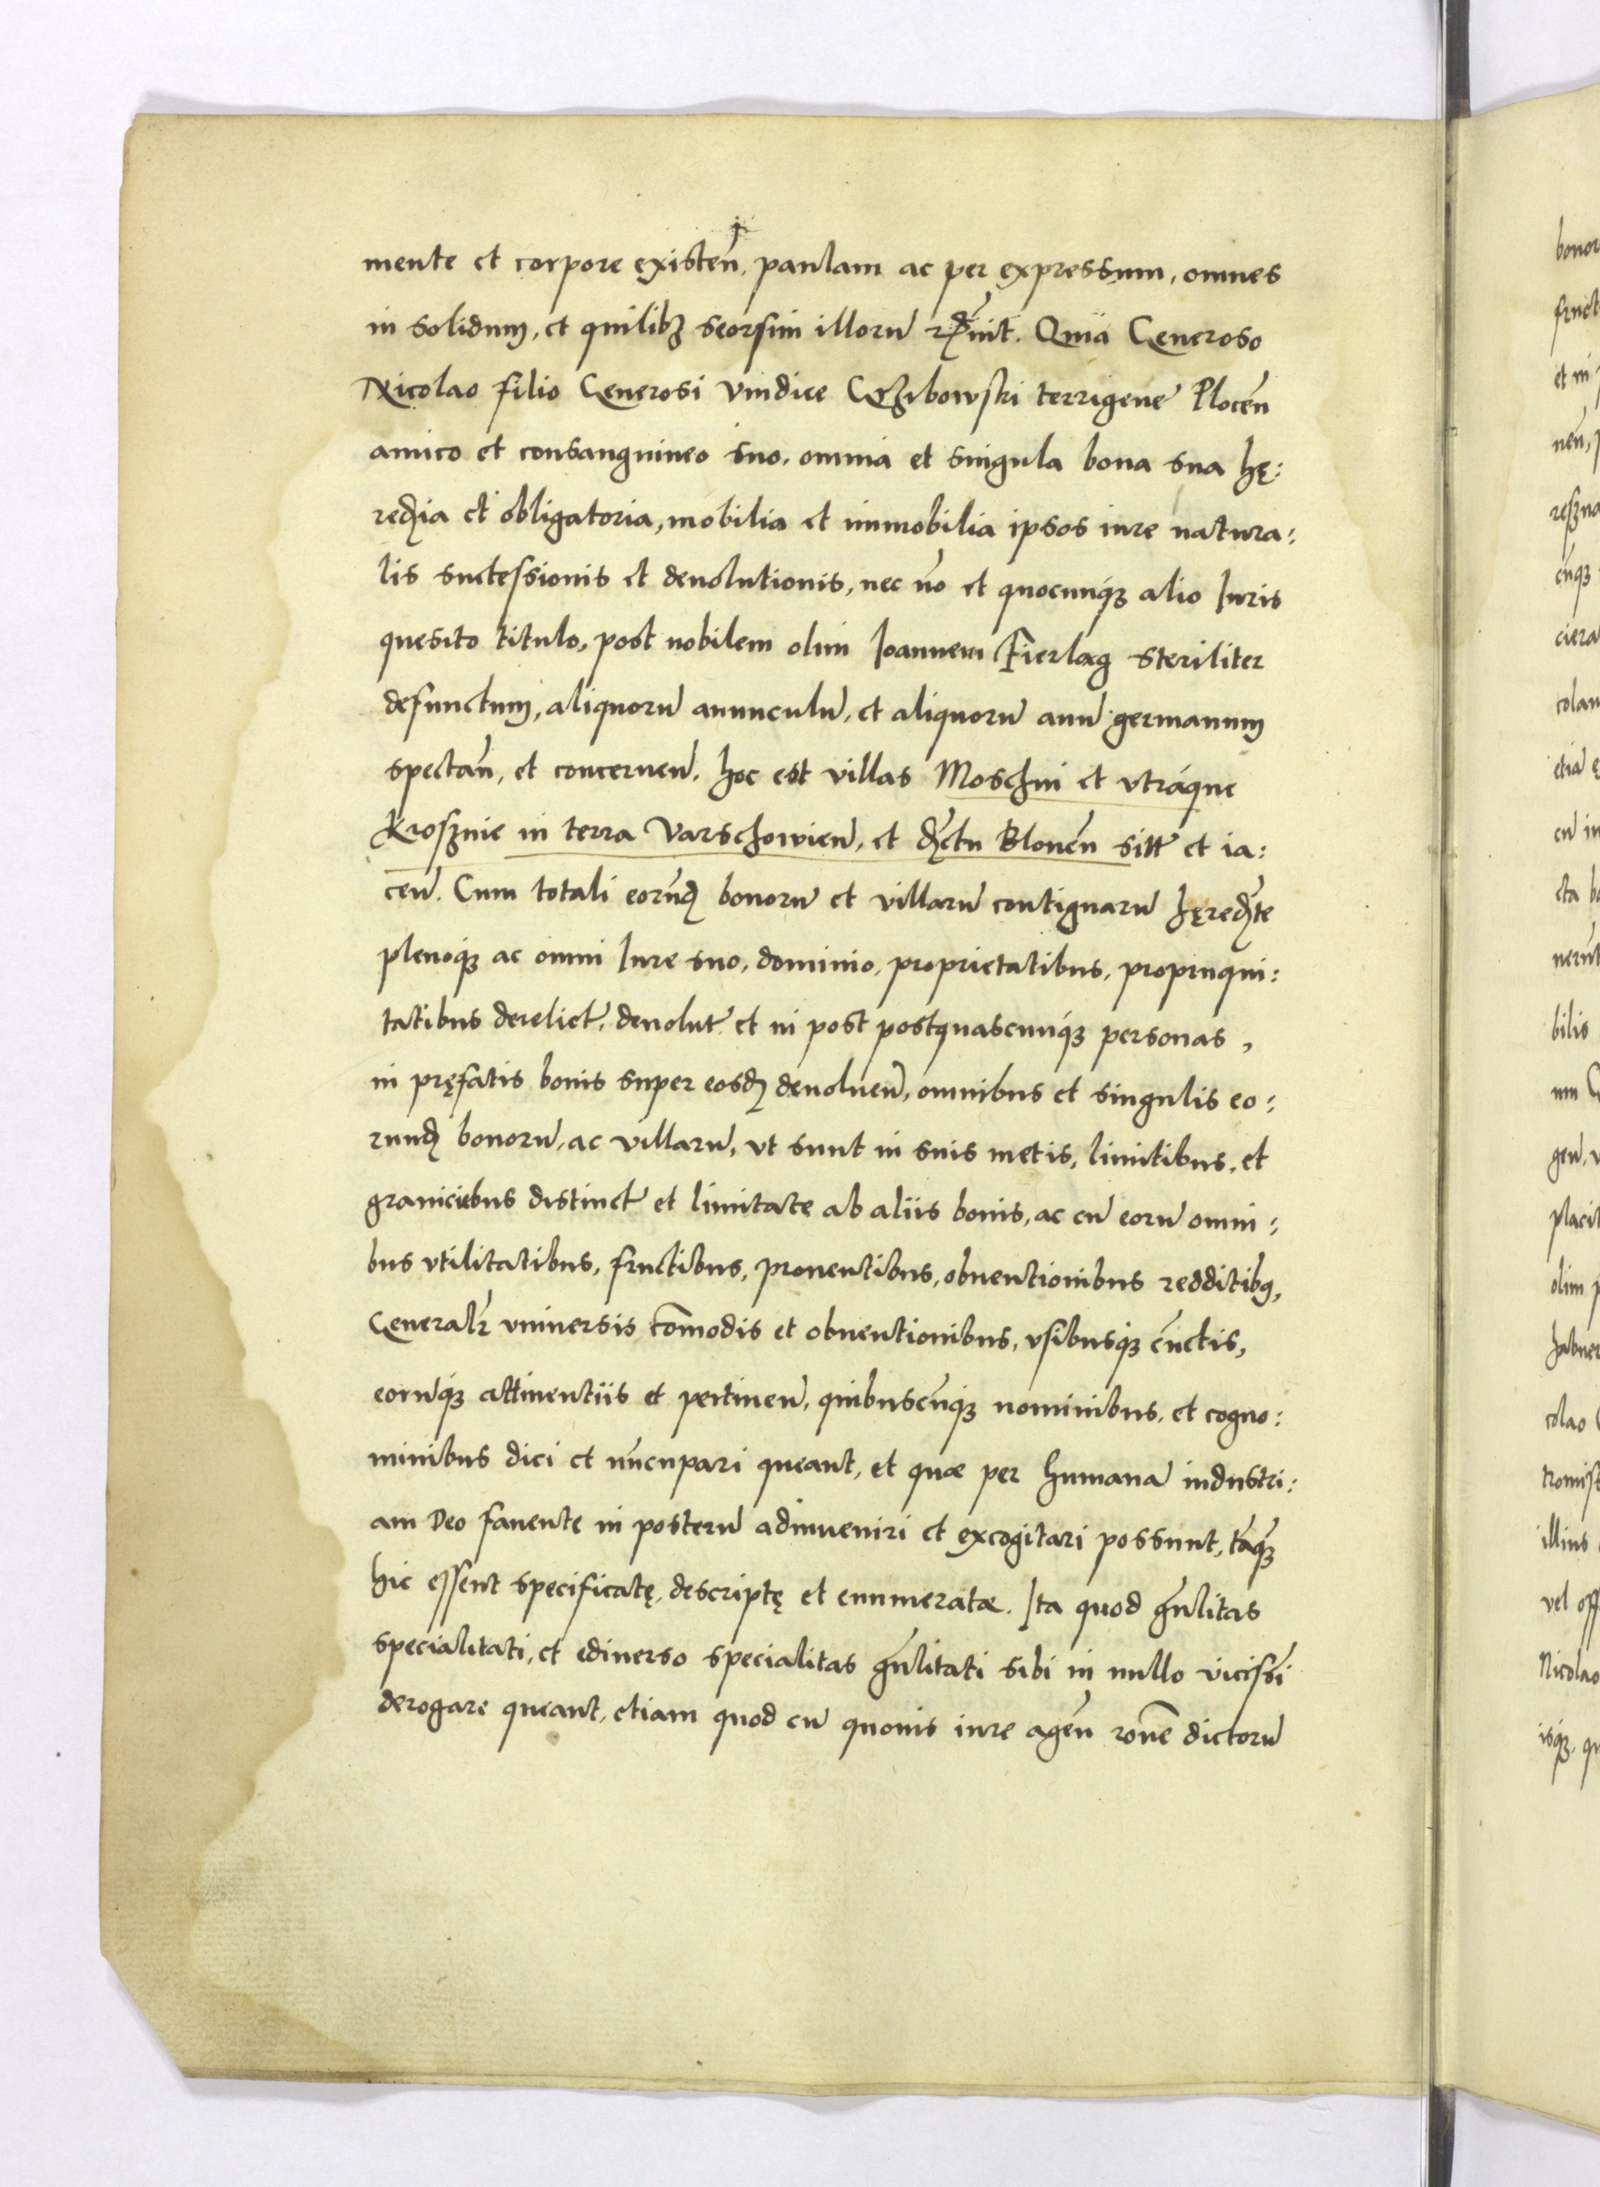 mente et corpore existeñ, panlam ac per expressum, omnes
in solidum, et quilibꝫ seorsim illorū Quia Generoso
Nicolao filio Generosi Vindice terrigene Plocēn
amico et consanguineo suo, omnia et singula bona sua hę:
redia et obligatoria, mobilia et immobilia ipsos iure natura:
lis successionis et deuolutionis, nec nō et quocunqꝫ alio Iuris
quesito titulo, post nobilem olim Ioannem Fierlag steriliter
defunctum, aliquorū auunculū, et aliquorū auū germanum
spectañ, et concerneñ, hoc est villas Moschni et vtráque
Krosznie in terra Varschowieñ, et dictu Bloneñ sitt et ia:
ceñ. Cum totali eorūd bonorū et villarū contiguarū hęredte
plenoqꝫ ac omni Iure suo, dominio, proprietatibus, propinqui:
tatibus derelict, deuolut et in post postquascunqꝫ personas,
in pręfatis bonis super eosd deuolueñ, omnibus et singulis eo:
rund bonorū, ac villarū, vt sunt in suis metis, limitibus, et
graniciebus distinct et limitate ab aliis bonis, ac cū eorū omni:
bus vtilitatibus, fructibus, prouentibus, obuentionibus redditibꝯ,
Generalr vniuersis cōmodis et obuentionibus, vsibusqꝫ cūctis,
eorūqꝫ attinentiis et pertineñ, quibuscūqꝫ nominibus, et cogno:
minibus dici et nūcupari queant, et quæ per humanā industri:
am Deo fauente in posterū adinueniri et excogitari possunt, tāqꝫ
hic essent specificatę, descriptę et enumeratæ. Ita quod gñlitas
specialitati, et ediuerso specialitas gñlitati sibi in nullo vicissī
derogare queant, etiam quod cū quouis iure ageñ rōne dictorū